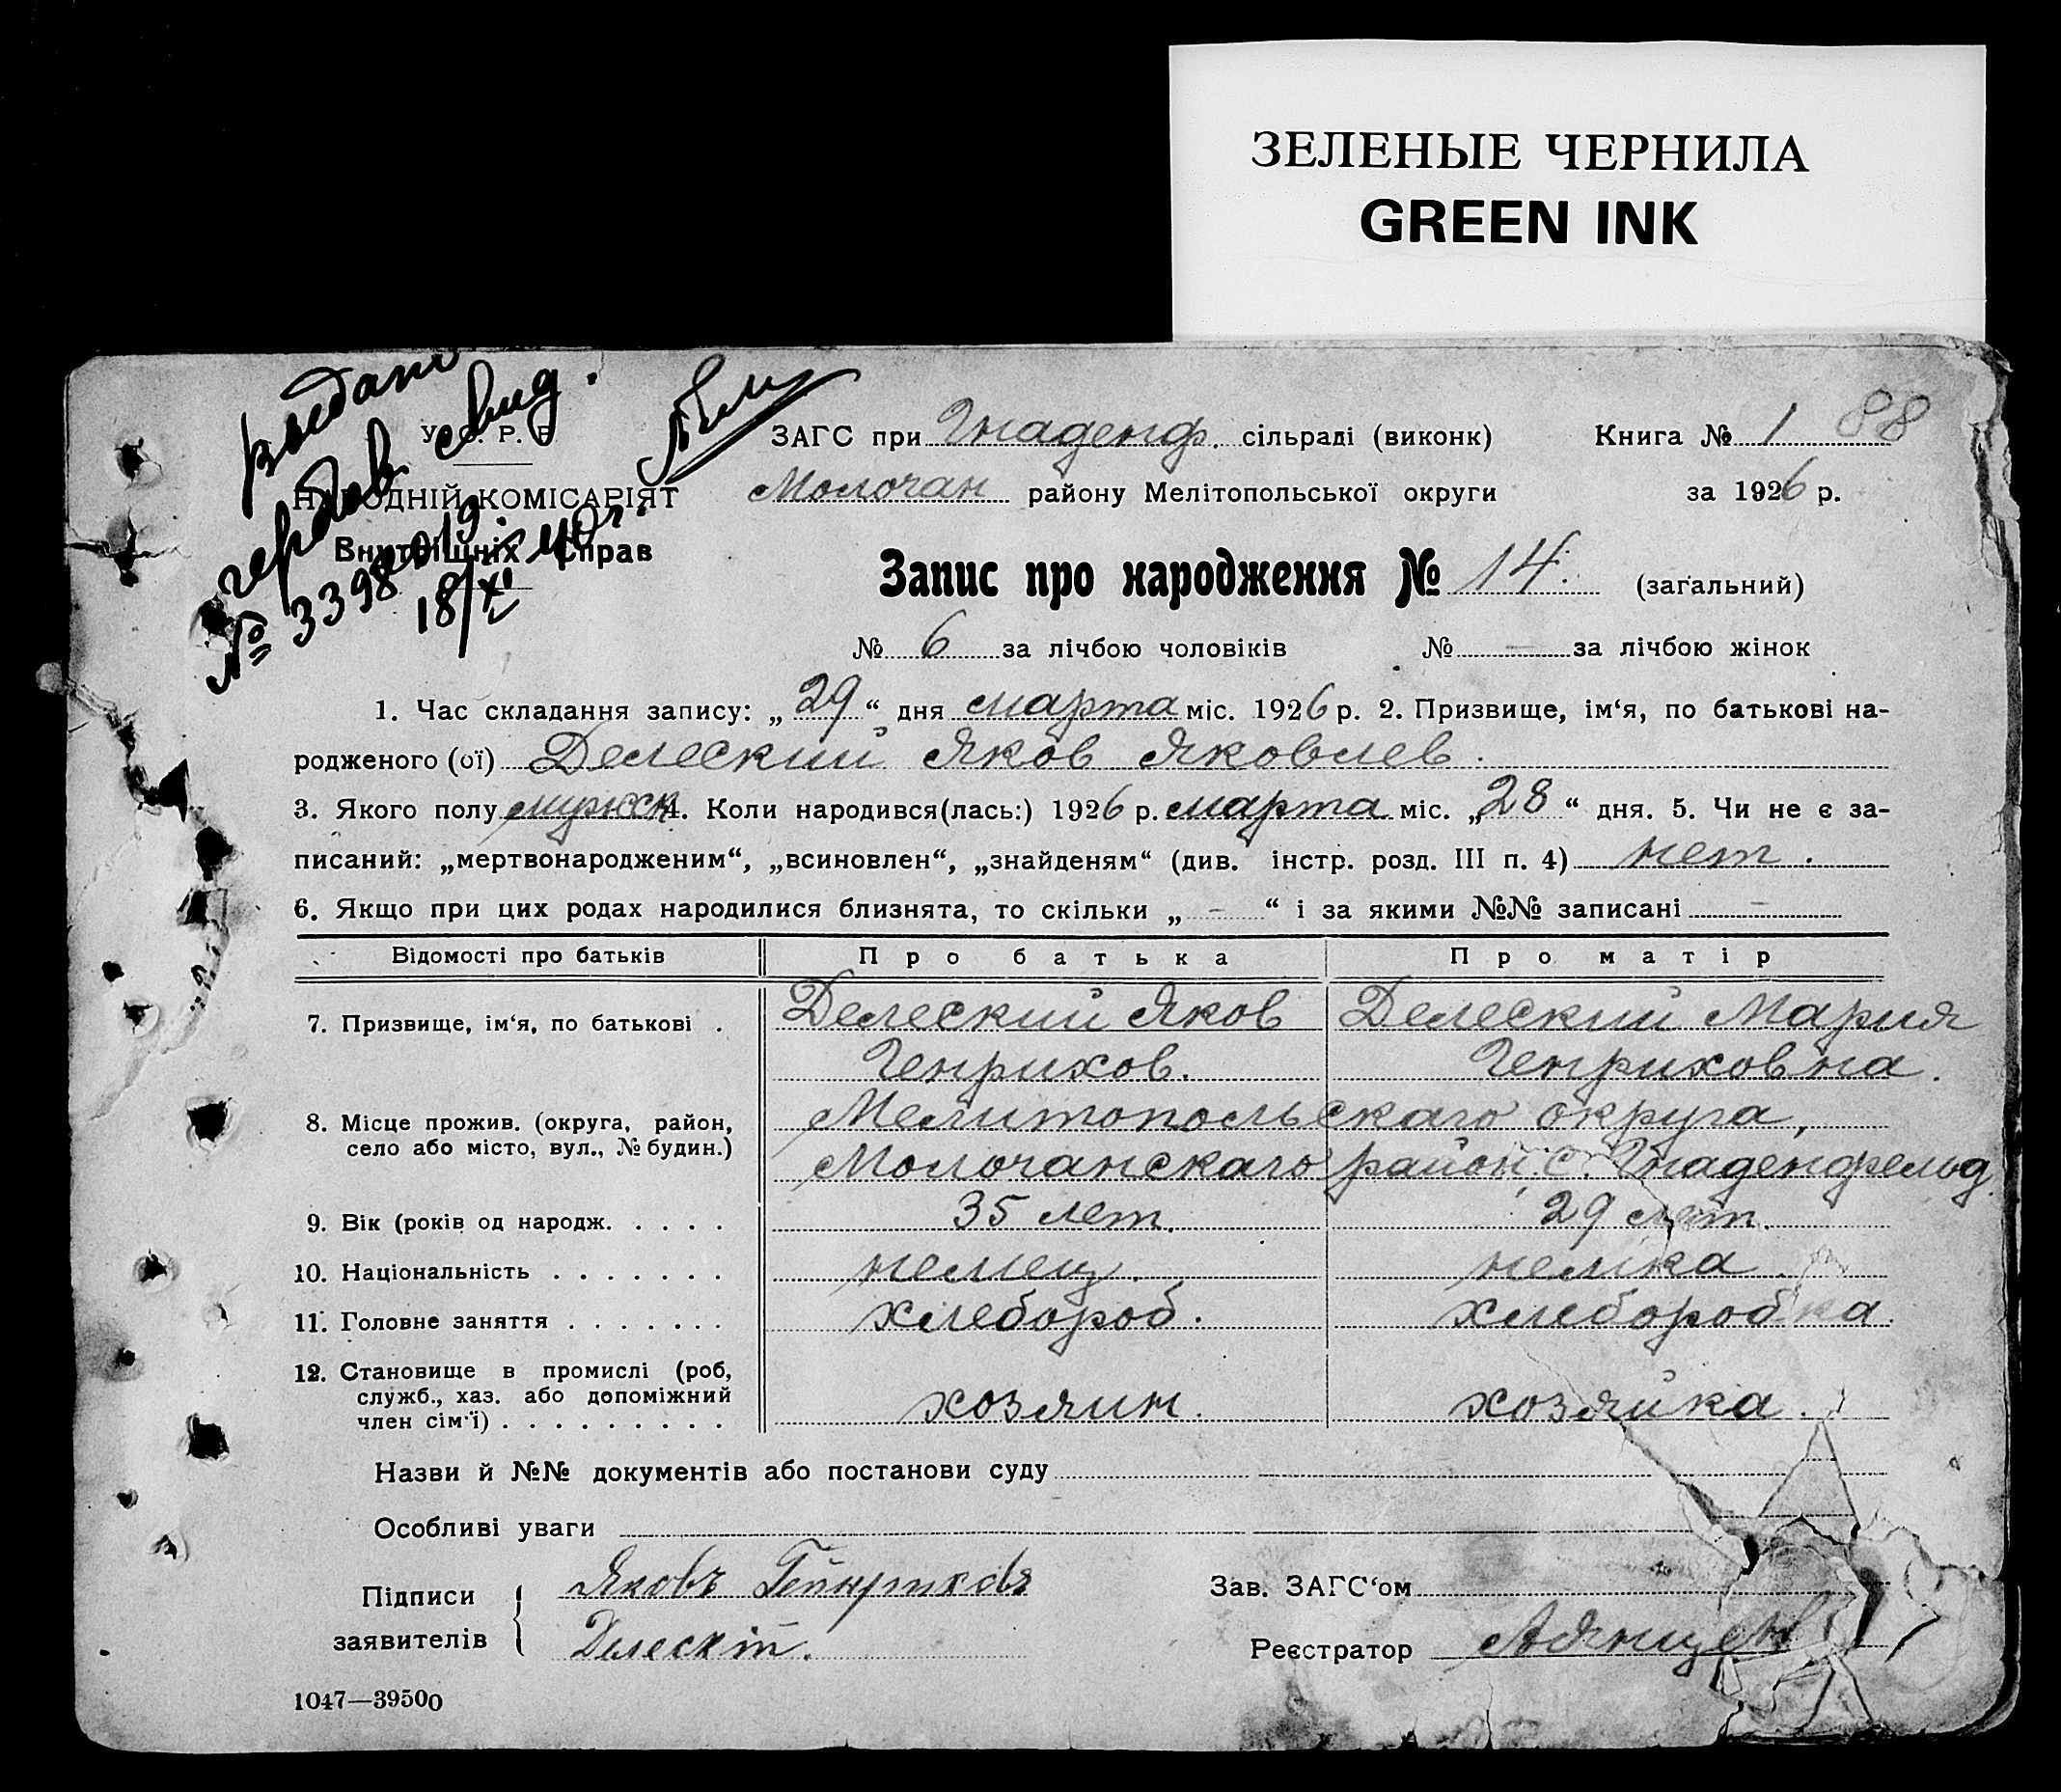 ЗЕЛЕНЫЕ ЧЕРНИЛА
GREEN INK
У. С. Р. Р.
НАРОДНІЙ КОМІСАРІЯТ
Внутрішніх Справ
свид.
№ 3398
18/XI 40 г.
ЗАГС при Гнаденф. сільраді (виконк) Книга № 1 88
Молочан району Мелітопольської округи за 1926 р.
Запис про народження № 14. (загальний)
№ 6 за лічбою чоловіків № — за лічбою жінок
1. Час складання запису: „29“ дня марта міс. 1926 р. 2. Призвище, ім‘я, по батькові на-
родженого (ої) Делеский Яков Яковлев.
3. Якого полу мужск 4. Коли народився(лась:) 1926 р. марта міс. „28“ дня. 5. Чи не є за-
писаний: „мертвонародженим“, „всиновлен“, „знайденям“ (див. інстр. розд. III п. 4) нет.
6. Якщо при цих родах народилися близнята, то скільки „ - “ і за якими №№ записані -
Відомості про батьків Про батька Про матір
7. Призвище, ім‘я, по батькові . Делеский Яков Делеский Мария
Генрихов. Генриховна.
8. Місце прожив. (округа, район, Мелитопольскаго округа,
село або місто, вул., № будин.) Молочанскаго район. с. Гнаденфельд.
9. Вік (років од народж. . . . . 35 лет. 29 лет.
10. Національність . . . . . . . немец. немка.
11. Головне заняття . . . . . . . хлебороб. хлеборобка.
12. Становище в промислі (роб,
служб., хаз. або допоміжний
член сім‘ї) . . . . . . . . . хозяин. хозяйка.
Назви й №№ документів або постанови суду
Особливі уваги
Підписи Яковъ Зав. ЗАГС‘ом
заявителів Делескій. Реєстратор
1047—39500